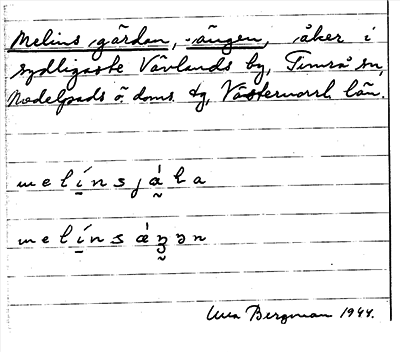 Melins gärdan, -ängen, åker i
sydligaste Vävlands by, Timrå sn,
Medelpads ö. doms. tg, Västernorrl. län.
melínsjá̰ḷa
melínsá̰ŋən
Bergman 1944.